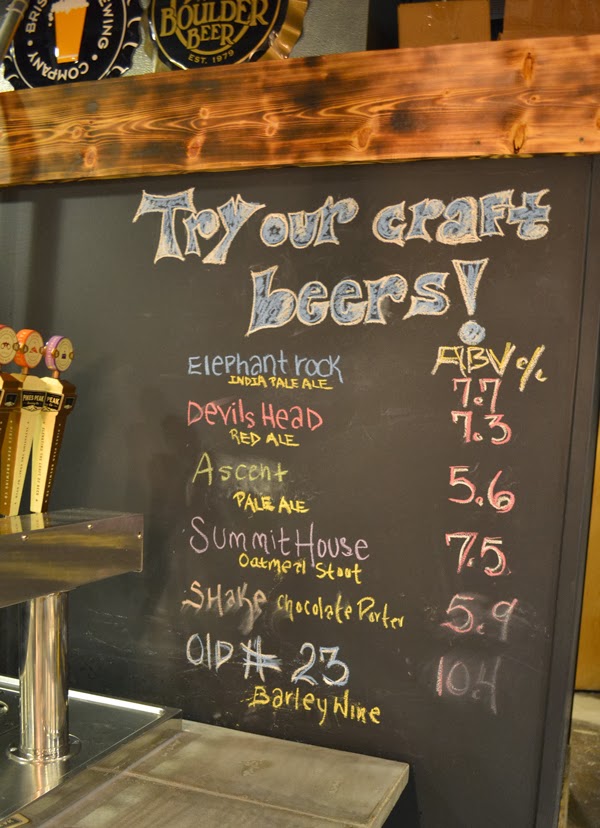 BREWING
COMPANY
BOULDER
BEER
EST. 1979
Try our craft
beers!
ABV %
Elephant rock 7.7
INDIA PALE ALE
Devils Head 7.3
RED ALE
Ascent 5.6
PALE ALE
Summit House 7.5
Oatmeal Stout
SHake Chocolate Porter 5.9
Old # 23 10.4
Barley Wine
PIKES PEAK
PEAK